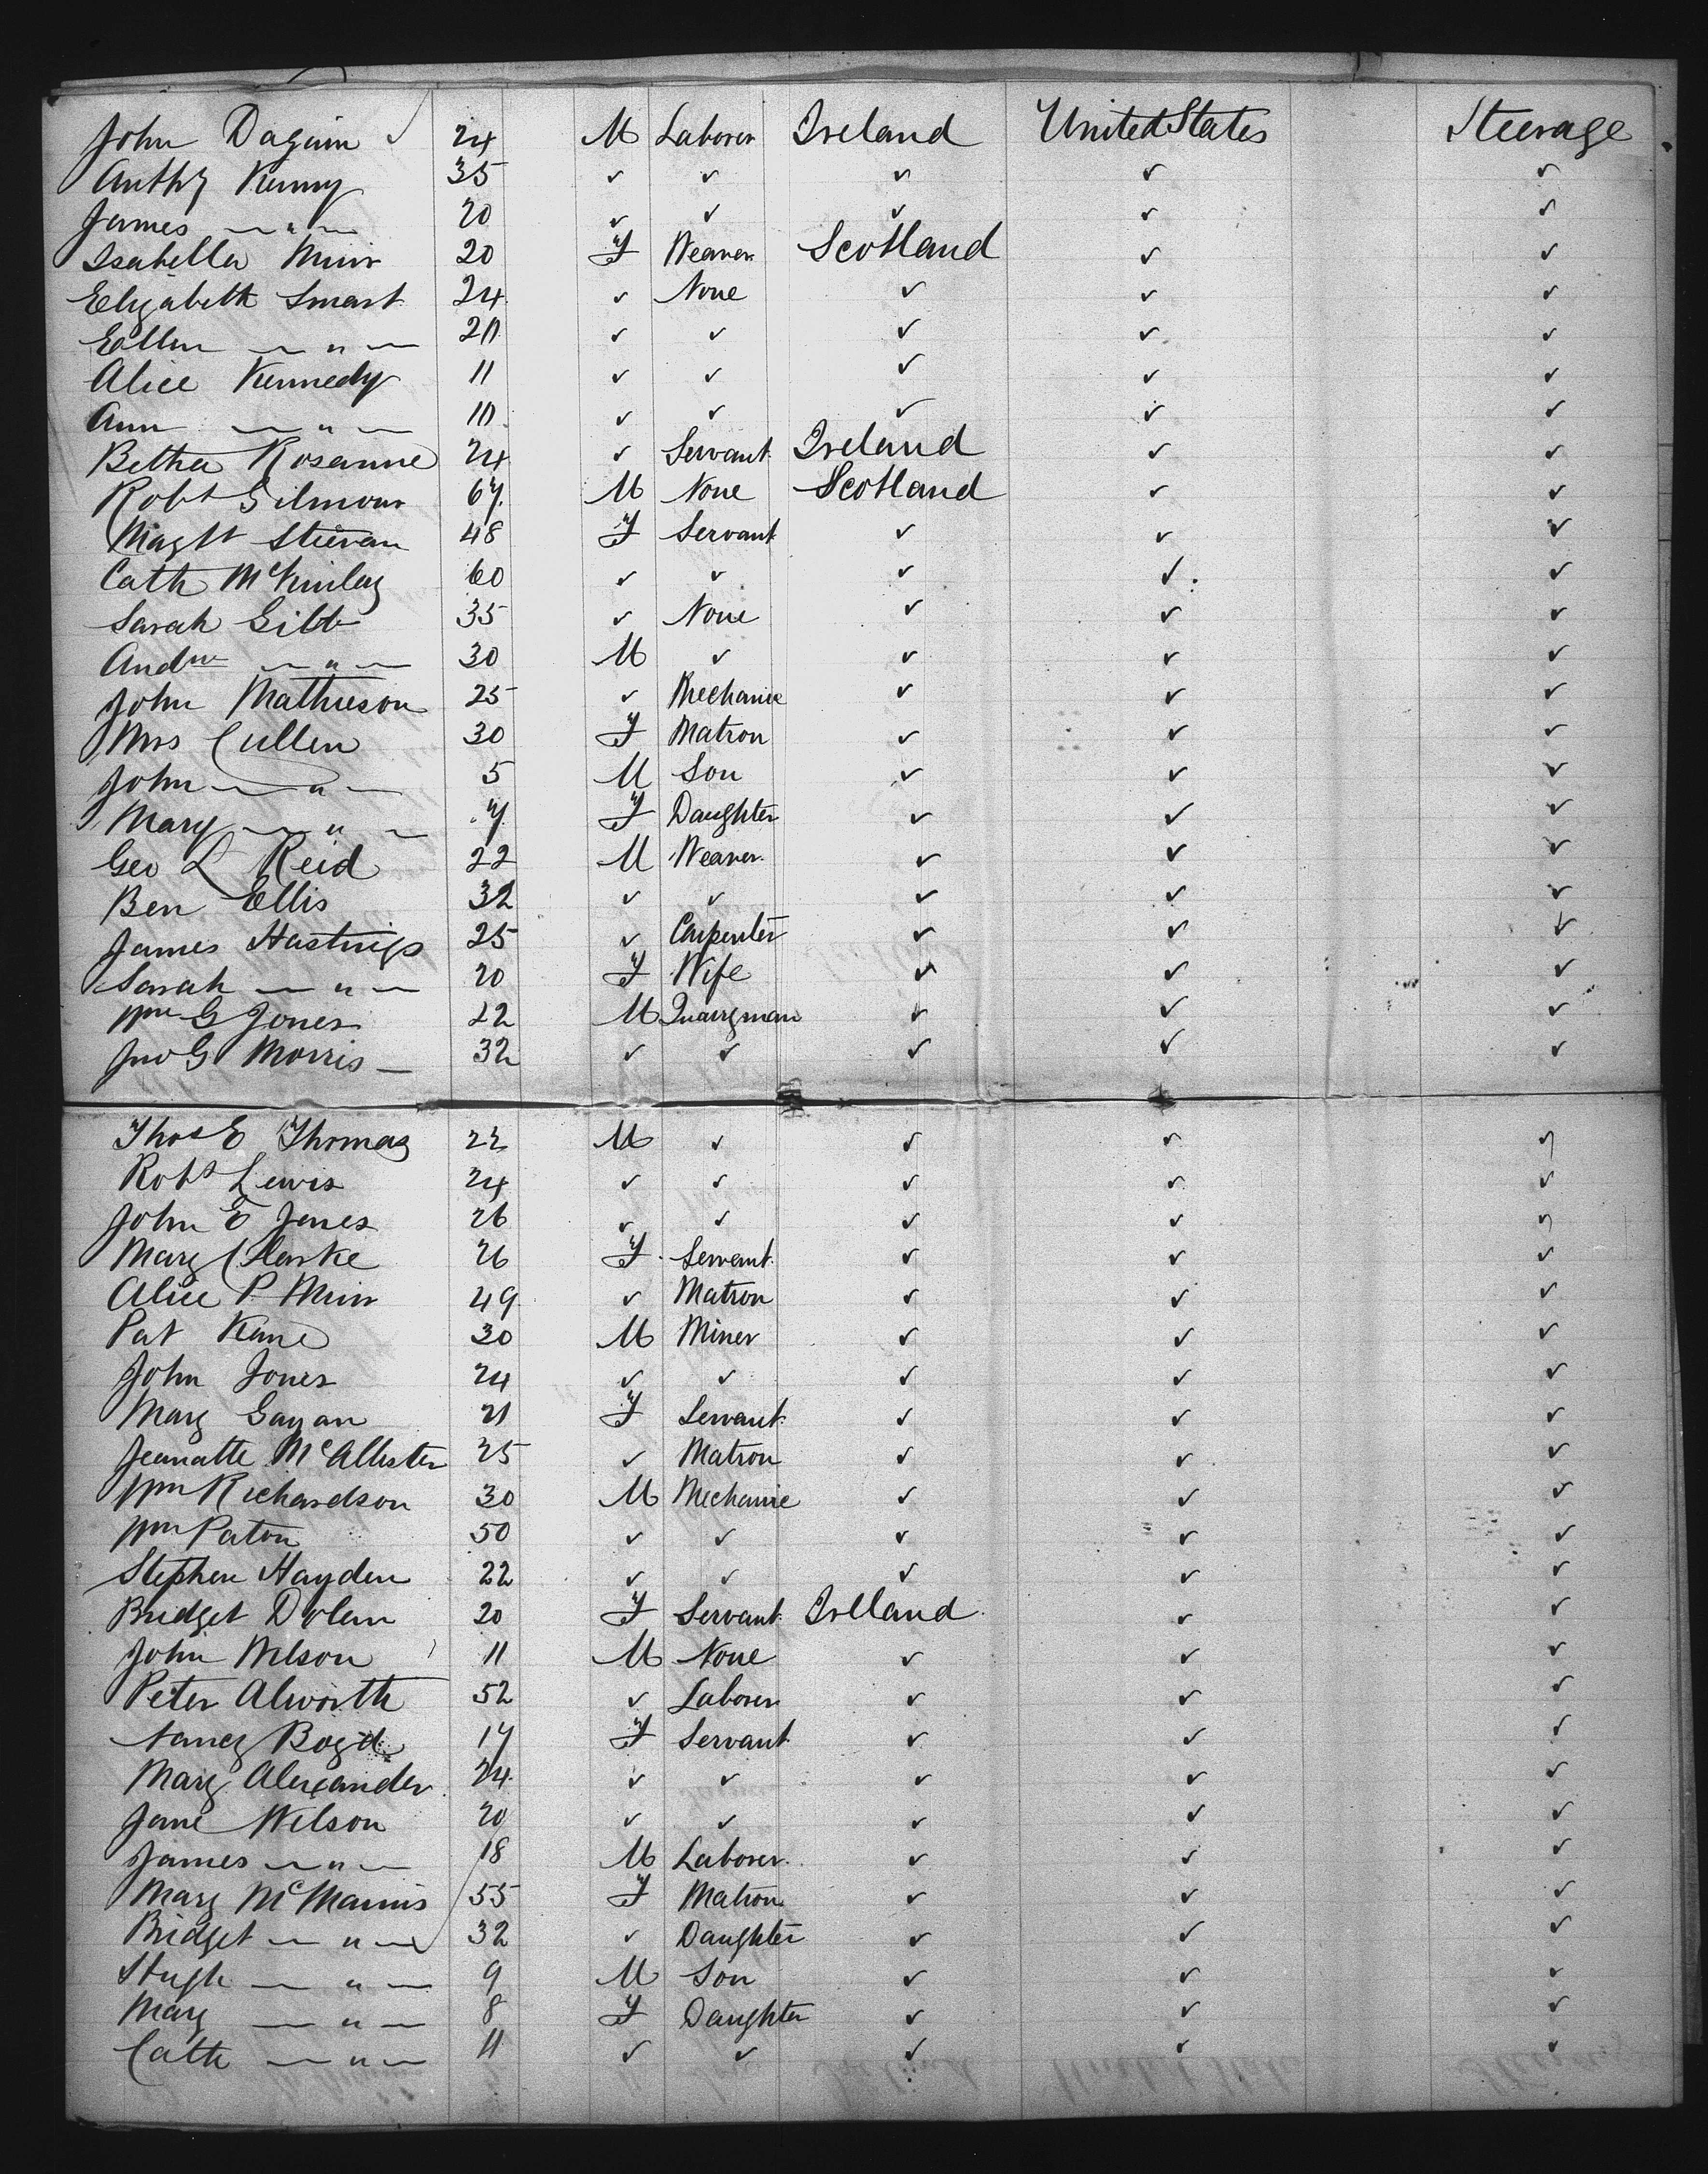 John Dagium ✓ 24 M Laborer Ireland United States Steerage
Anthy Kenny 35 ✓ ✓ ✓ ✓ ✓
James — " — 20 ✓ ✓ ✓ ✓ ✓
Isabella Muir 20 F Weaver Scotland ✓ ✓
Elizabeth Smart 24 ✓ None ✓ ✓ ✓
Ellen — " — 20 ✓ ✓ ✓ ✓ ✓
Alice Kennedy 11 ✓ ✓ ✓ ✓ ✓
Ann — " — 10 ✓ ✓ ✓ ✓ ✓
Betha Rosanne 24 ✓ Servant Ireland ✓ ✓
Robt Gilmour 67 M None Scotland ✓ ✓
Magtt 48 F Servant ✓ ✓ ✓
Cath McKinlay 60 ✓ ✓ ✓ ✓ ✓
Sarah Gibb 35 ✓ None ✓ ✓ ✓
Andw — " — 30 M ✓ ✓ ✓ ✓
John Mathieson 25 ✓ Mechanic ✓ ✓ ✓
Mrs Cullen 30 F Matron ✓ ✓ ✓
John — " — 5 M Son ✓ ✓ ✓
Mary — " — 7 F Daughter ✓ ✓ ✓
Geo L Reid 22 M Weaver ✓ ✓ ✓
Ben Ellis 32 ✓ ✓ ✓ ✓ ✓
James Hastings 25 ✓ Carpenter ✓ ✓ ✓
Sarah — " — 20 F Wife ✓ ✓ ✓
Wm G Jones 22 M Quarryman ✓ ✓ ✓
Jno G Morris — 32 ✓ ✓ ✓ ✓ ✓
Thos E Thomas 22 M ✓ ✓ ✓ ✓
Robt Lewis 24 ✓ ✓ ✓ ✓ ✓
John E Jones 26 ✓ ✓ ✓ ✓ ✓
Mary Clarke 26 F Servant ✓ ✓ ✓
Alice P Muir 49 ✓ Matron ✓ ✓ ✓
Pat Kane 30 M Miner ✓ ✓ ✓
John Jones 24 ✓ ✓ ✓ ✓ ✓
Mary Gagan 21 F Servant ✓ ✓ ✓
Jeanatte McAllister 25 ✓ Matron ✓ ✓ ✓
Wm Richardson 30 M Mechanic ✓ ✓ ✓
Wm Paton 50 ✓ ✓ ✓ ✓ ✓
Stephen Hayden 22 ✓ ✓ ✓ ✓ ✓
Bridget Dolan 20 F Servant Ireland ✓ ✓
John Wilson 11 M None ✓ ✓ ✓
Peter Alworth 52 ✓ Laborer ✓ ✓ ✓
Nancy Boyd 17 F Servant ✓ ✓ ✓
Mary Alexander 24 ✓ ✓ ✓ ✓ ✓
Jane Wilson 20 ✓ ✓ ✓ ✓ ✓
James — " — 18 M Laborer ✓ ✓ ✓
Mary McManus 55 F Matron ✓ ✓ ✓
Bridget — " — 32 ✓ Daughter ✓ ✓ ✓
Hugh — " — 9 M Son ✓ ✓ ✓
Mary — " — 8 F Daughter ✓ ✓ ✓
Cath — " — 11 ✓ ✓ ✓ ✓ ✓